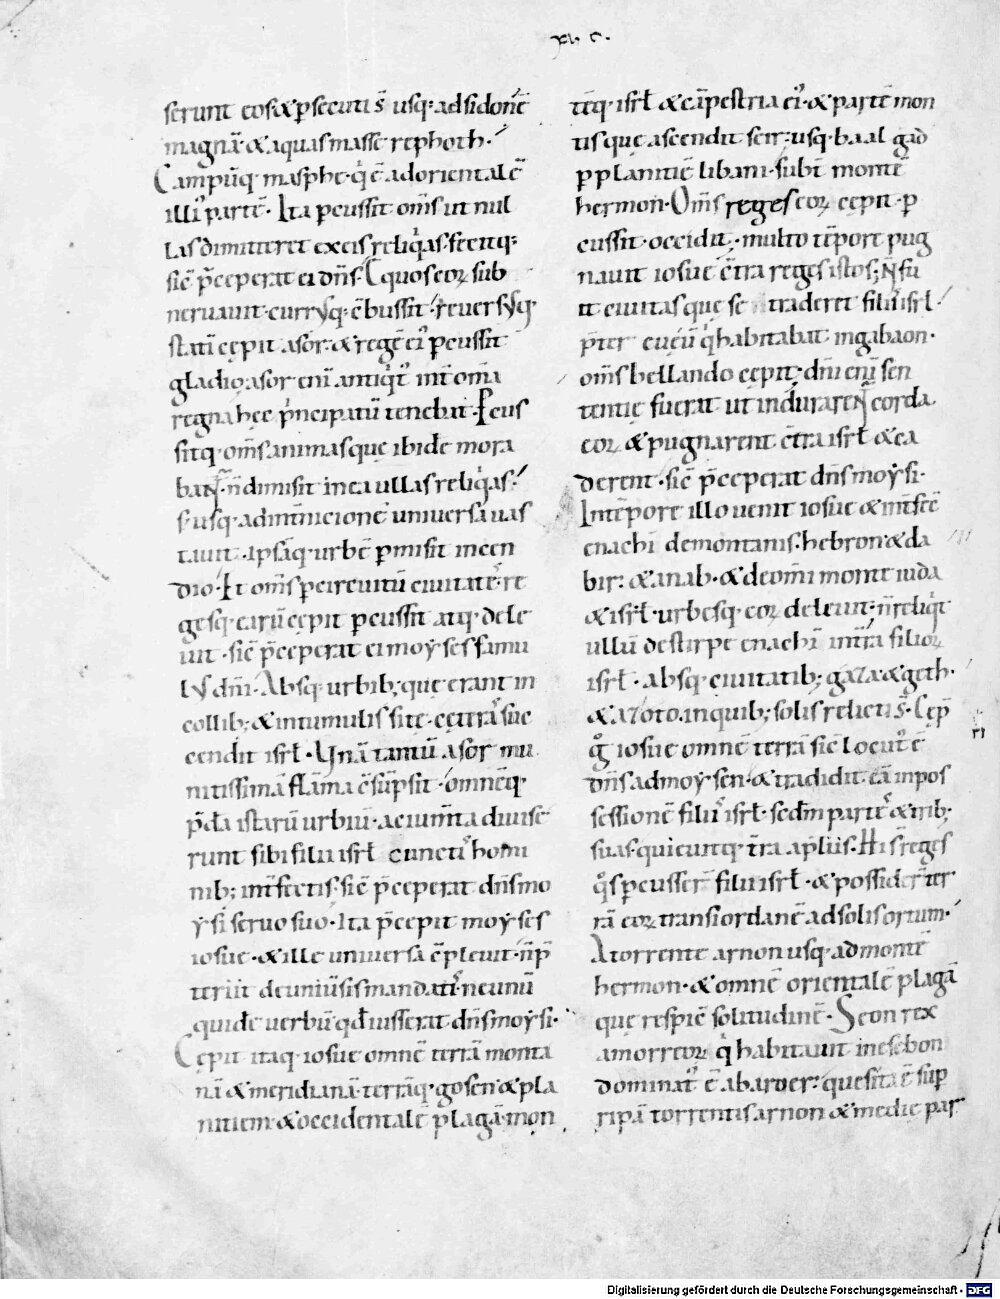 xi. c.
serunt eos & ꝑsecuti s̄ usq; ad sidonē
magnā· & aquas masserephoth·
Campūq· masphe· q̇ ē ad orientalē
illi᾽ partē· Ita ꝑcussit om̄s ut nul
las dimitteret ex eis reliq̇as· fecitq;
sic̄ p̄ceperat ei dn̄s· equos eoꝝ sub
neruauit· currusq· cōbussit· reuersusq·
statī cępit asor· & regē ei᾽ ꝑcussit
gladio· asor enī antiq̇t᾽ int̄ om̄a
regna hec ṗncipatū tenebat· Pcus
sitq· om̄s animas quę ibidē mora
bant̄· n̄ dimisit in ea ullas reliq̇as·
s; usq· ad int̄nicionē uniuersa uas
tauit· ipsāq· urbē ꝑmisit incen
dio· Et om̄s ꝑ circuitū ciuitatē· re
gesq· earū cępit ꝑcussit atq· dele
uit· sic̄ p̄ceperat ei moyses famu
lus dn̄i· Absq· urbib; quę erant in
collib; & in tumulis sitę· cęt̄ra suc
cendit isrl̄· Vnā tantū asor mu
nitissimā flām̄a c̄sūpsit· omnēq·
p̄dā istarū urbiū· ac iumēta diuise
runt sibi filii isrl̄ cunctis homi
nib; int̄fectis· sic̄ p̄ceperat dn̄s mo
ysi seruo suo· Ita p̄cepit moyses
iosue· & ille uniuersa c̄pleuit· n̄ p̄
teriit de uniūsis mandatis· ne unū
quidē uerbū qd̄ iusserat dn̄s moysi·
Cępit itaq· iosue omnē terrā monta
nā & meridianā· terrāq· gosen & pla
nitiem· & occidentalē plagā· mon
tēq· isrl̄ & cāpestria ei᾽· & partē mon
tis quę ascendit seir· usq· baal gad
ꝑ planitiē libani· subt̄ montē
hermon· Om̄s reges eoꝝ cępit· ꝑ
cussit· occidit· multo tēpore pug
nauit iosue c̄tra reges istos; n̄ fu
it ciuitas quę se traderet filiis isrl̄·
p̄ter euęū q̇ habitabat in gabaon·
om̄s bellando cępit; dn̄i enī sen
tentię fuerat ut indurarent̄ corda
eoꝝ & pugnarent c̄tra isrl̄ & ca
derent· sic̄ p̄ceperat dn̄s moysi·
In tēpore illo uenit iosue & int̄fec̄
enachī de montanis· hebron· & da
bir· & anab· & de om̄i monte iuda
& isrl̄· urbesq· eoꝝ deleuit· n̄ reliq̇t
ullū de stirpe enachī int̄ra filioꝝ
isrl̄· absq· ciuitatib; gaza & geth·
& azoto· in quib; solis relicti s̄· Cęp̄
g̊ iosue omnē terrā sic̄ locut᾽ ē
dn̄s ad moysen· & tradidit eā in pos
sessionē filiis isrl̄· sedm̄ partes & trib;
suas· quieuitq· t̄ra a p̄liis· Hi s̄ reges
q̊s ꝑcusser̄ filii isrl̄· & possider̄ ter
rā eoꝝ trans iordanē ad solis ortum·
A torrente arnon usq· ad montē
hermon· & omnē orientalē plagā
quę respic̄ solitudinē· Seon rex
amorreoꝝ q̇ habitauit in esebon
dominat᾽ ē ab aroer· quę sita ē sup̄
ripā torrentis arnon & medię par
Digitalisierung gefördert durch die Deutsche Forschungsgemeinschaft - DFG